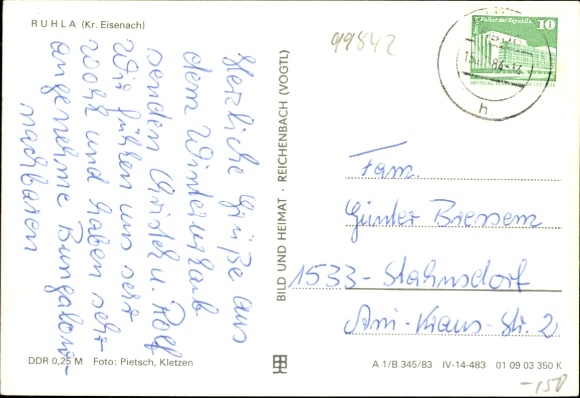 RUHLA (Kr. Eisenach)
99842
Herzliche Grüße aus
dem Winterurlaub
senden Christel u. Rolf
Wir fühlen uns sehr
wohl und haben sehr
angenehme Bungalow-
nachbaren
BILD UND HEIMAT · REICHENBACH (VOGTL)
Palast der Republik
10
84-14
h
Fam.
Günter Bressem
1533 - Stahnsdorf
Str. 2
DDR 0,25 M Foto: Pietsch, Kletzen
A 1/B 345/83 IV-14-483 01 09 03 350 K
-150